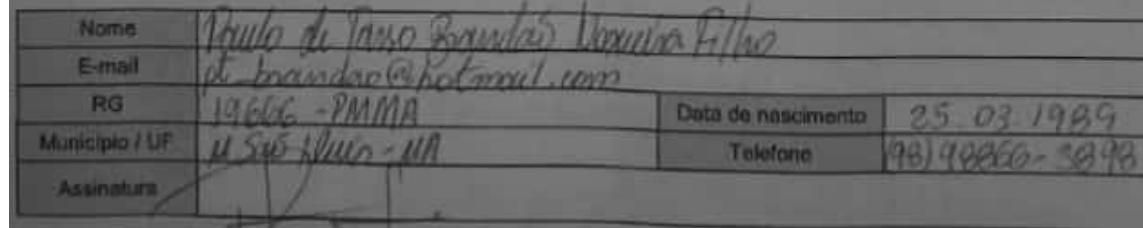 Nome Paulo de Tasso Brandão Nogueira Filho
E-mail pt_brandao@hotmail.com
RG 19666 - PMMA Data de nascimento 25.03.1989
Município / UF São Luís - MA Telefone (98) 98866-3898
Assinatura